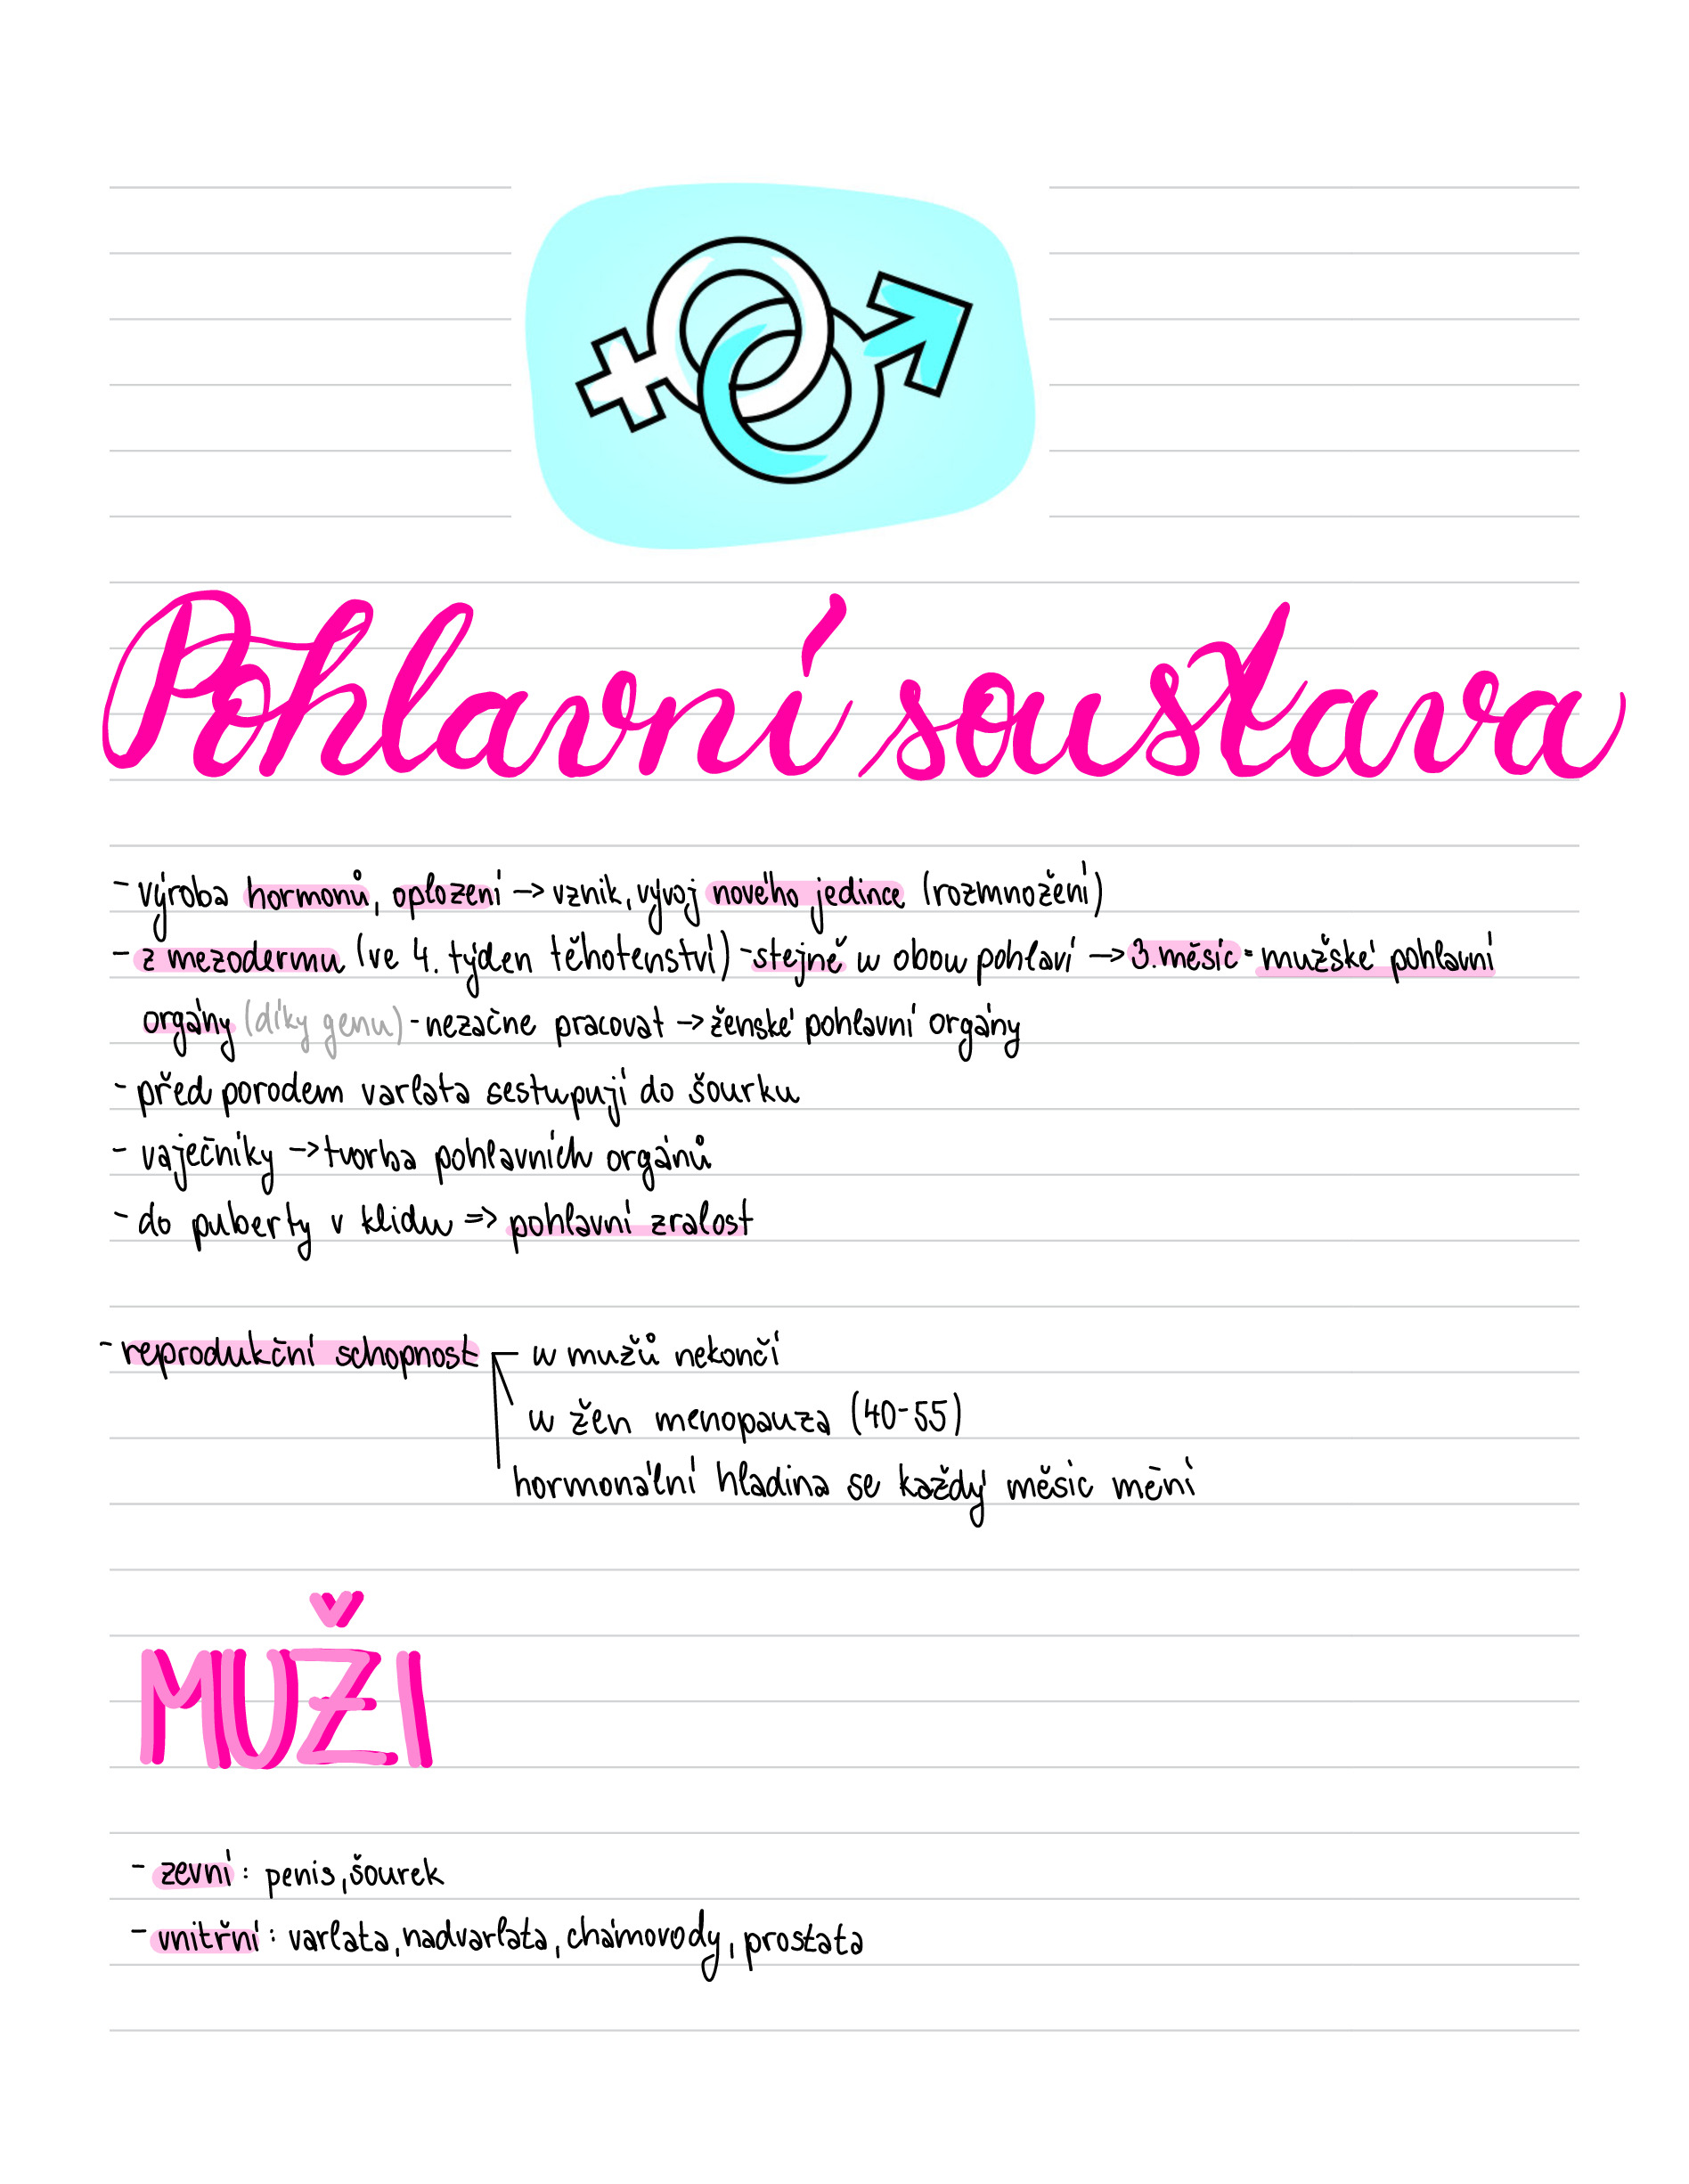 Pohlavní soustava
- výroba hormonů, oplození → vznik, vývoj nového jedince (rozmnožení)
- z mezodermu (ve 4. týden těhotenství) - stejné u obou pohlaví → 3. měsíc = mužské pohlavní
orgány (díky genu) - nezačne pracovat → ženské pohlavní orgány
- před porodem varlata sestupují do šourku
- vaječníky → tvorba pohlavních orgánů
- do puberty v klidu => pohlavní zralost
- reprodukční schopnost - u mužů nekončí
u žen menopauza (40-55)
hormonální hladina se každý měsíc mění
MUŽI
- zevní: penis, šourek
- vnitřní: varlata, nadvarlata, chámovody, prostata